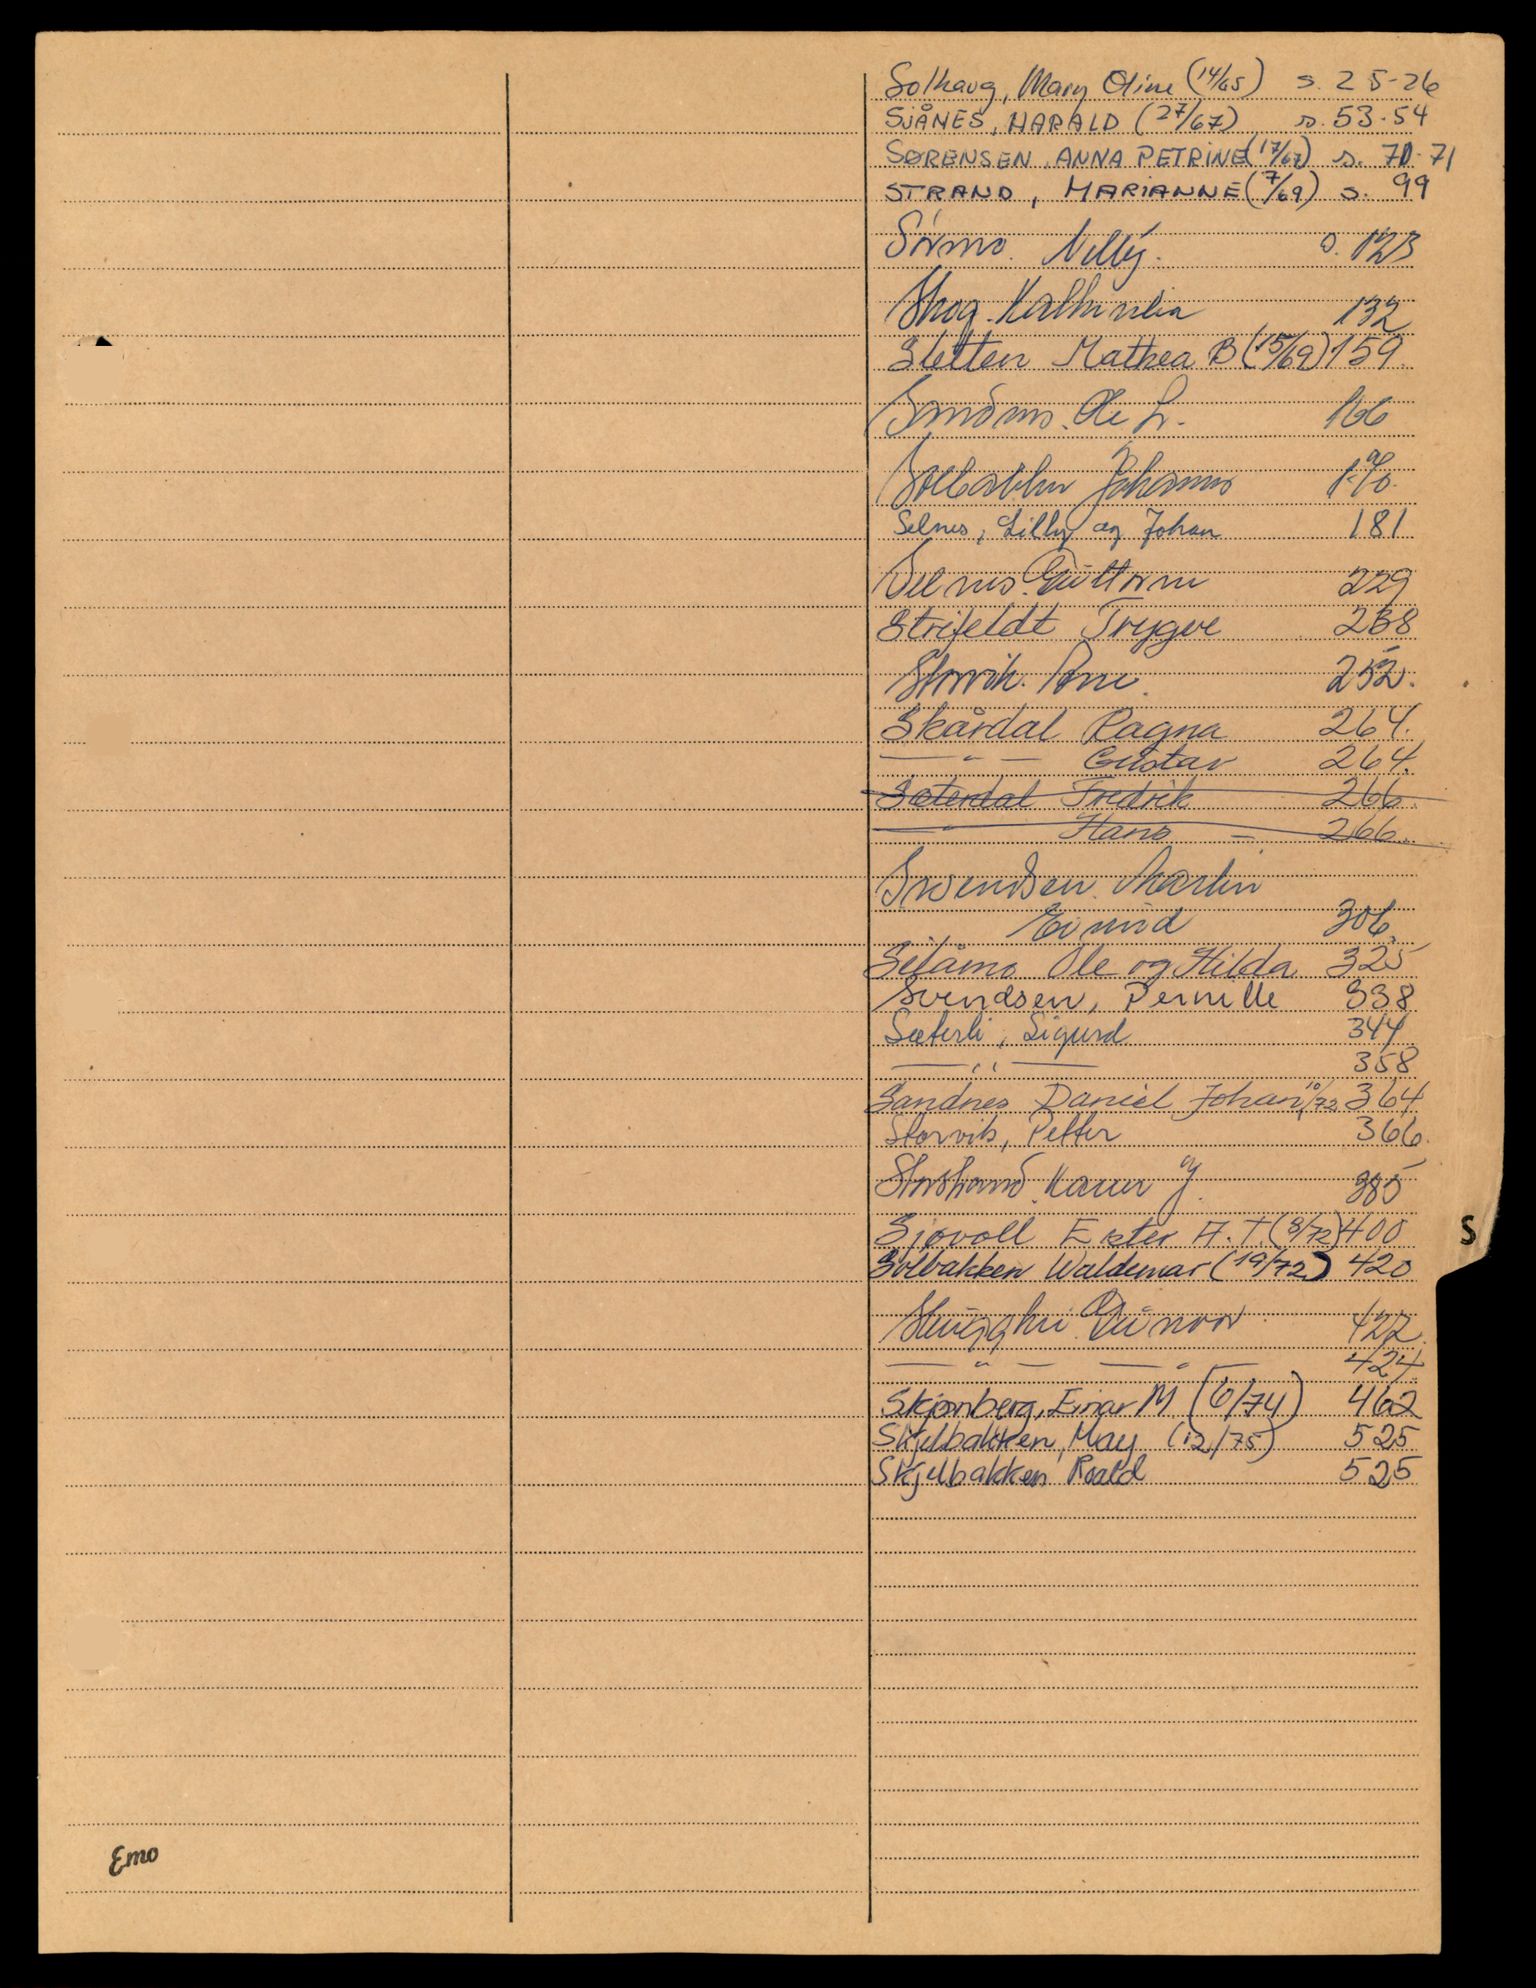 Solhaug, Mary Oline (14/65) s. 25-26
SJÅNES, HARALD (27/67) s. 53-54
SØRENSEN, ANNA PETRINE (17/67) s. 70-71
STRAND, MARIANNE (7/69) s. 99
Sörmo. Nelly. s. 123
Skog. 132
Sletten Mathea B (15/69) 159.
Ole L. 166
Solbakken Johannes 170.
Selnes, Lilly og Johan 181
Selnes. Guttorm 229
Strifeldt Trygve 238
Storvik. Arne. 252.
Skårdal Ragna 264.
— " — Gustav 264.
Sæterdal Fredrik 266.
— " — Hans — 266.
Svendsen. Martin
Eivind 306.
Ole og Hilda 325
Svendsen, Pernille 338
Sæterli, Sigurd 344
— " — 358
Sandnes Daniel Johan 10/72 364
Storvik, Petter 366.
Storstrand. Karen J. 385
Sjøvoll Ester A. T. (8/72) 400
Solbakken Waldemar (19/72) 420
Gunvor. 422.
— " — — " — 424.
Skjønberg, Einar M (6/74) 462
Skjelbakken, May (12/75) 525
Skjelbakken Roald 525
S
Emo